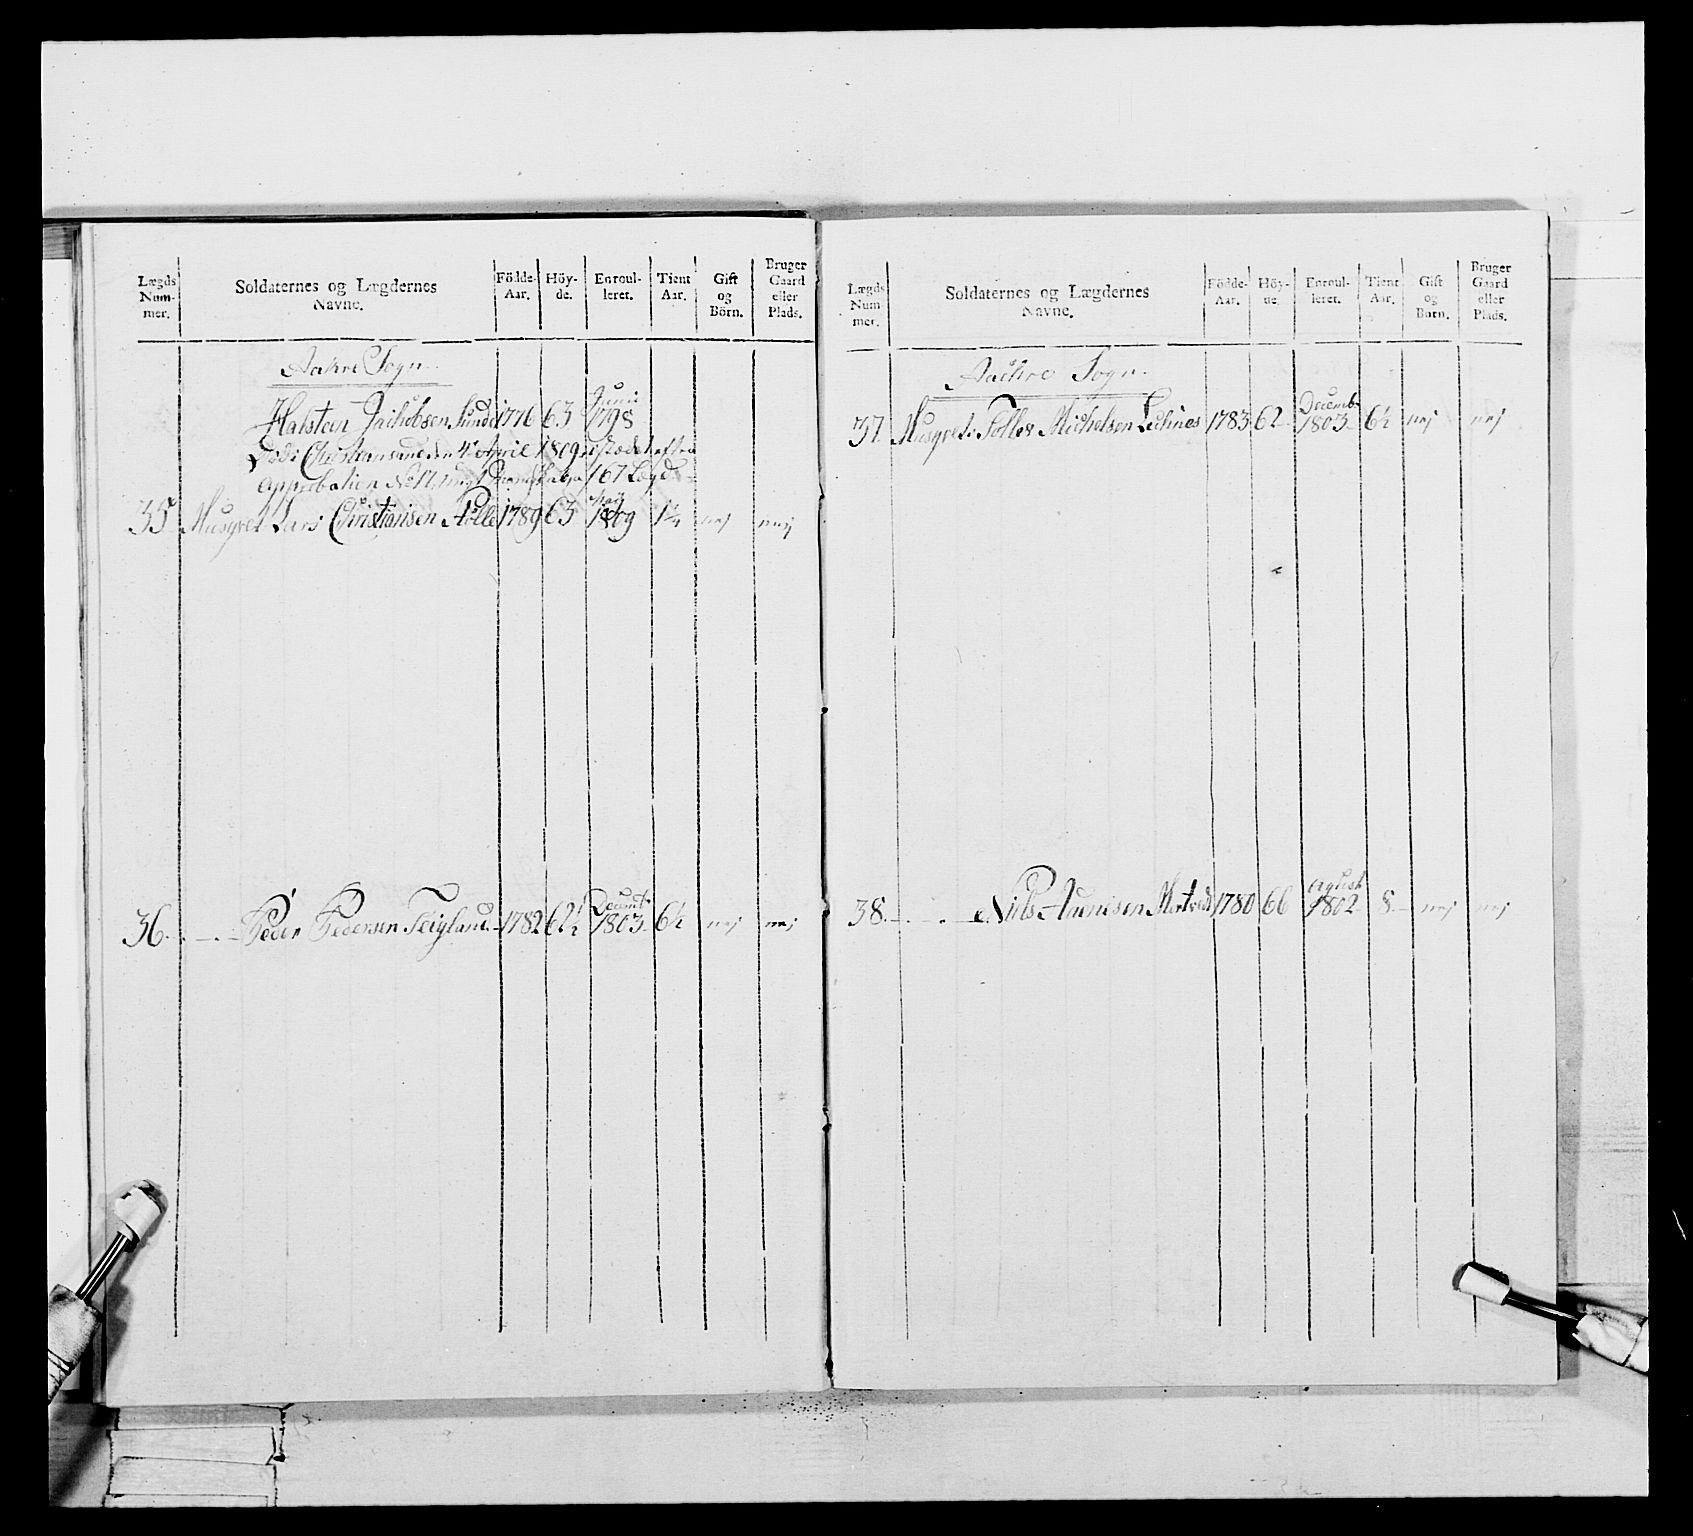 Lægds Num- mer.
Soldaternes og Lægdernes Navne.
Födde- Aar.
Höy- de.
Enroul- leret.
Tient Aar.
Gift og Börn.
Bruger Gaard eller Plads.
Aakre Sogn.
Halsten Jachobsen Sunde 1776 63 Junii 1798
Död i Christiansand den 4de April 1809
Approbation No 167 Lægd
35 Musqvet Lars Christiansen Ølle 1789 63 1809 1½ nej nej
36. Peder Pedersen Teigland 1782 62½ Decemb. 1803 6½ nej nej
Lægds Num mer.
Soldaternes og Lægdernes Navne.
Födde- Aar.
Höy- de.
Enroul- leret.
Tient Aar.
Gift og Børn.
Bruger Gaard eller Plads.
Aachre Sogn.
37 Musqvet. Tollev Michelsen 1783 62 Decemb. 1803 6½ nej nej
38. Niels 1780 66 Agust 1802 8 nej nej